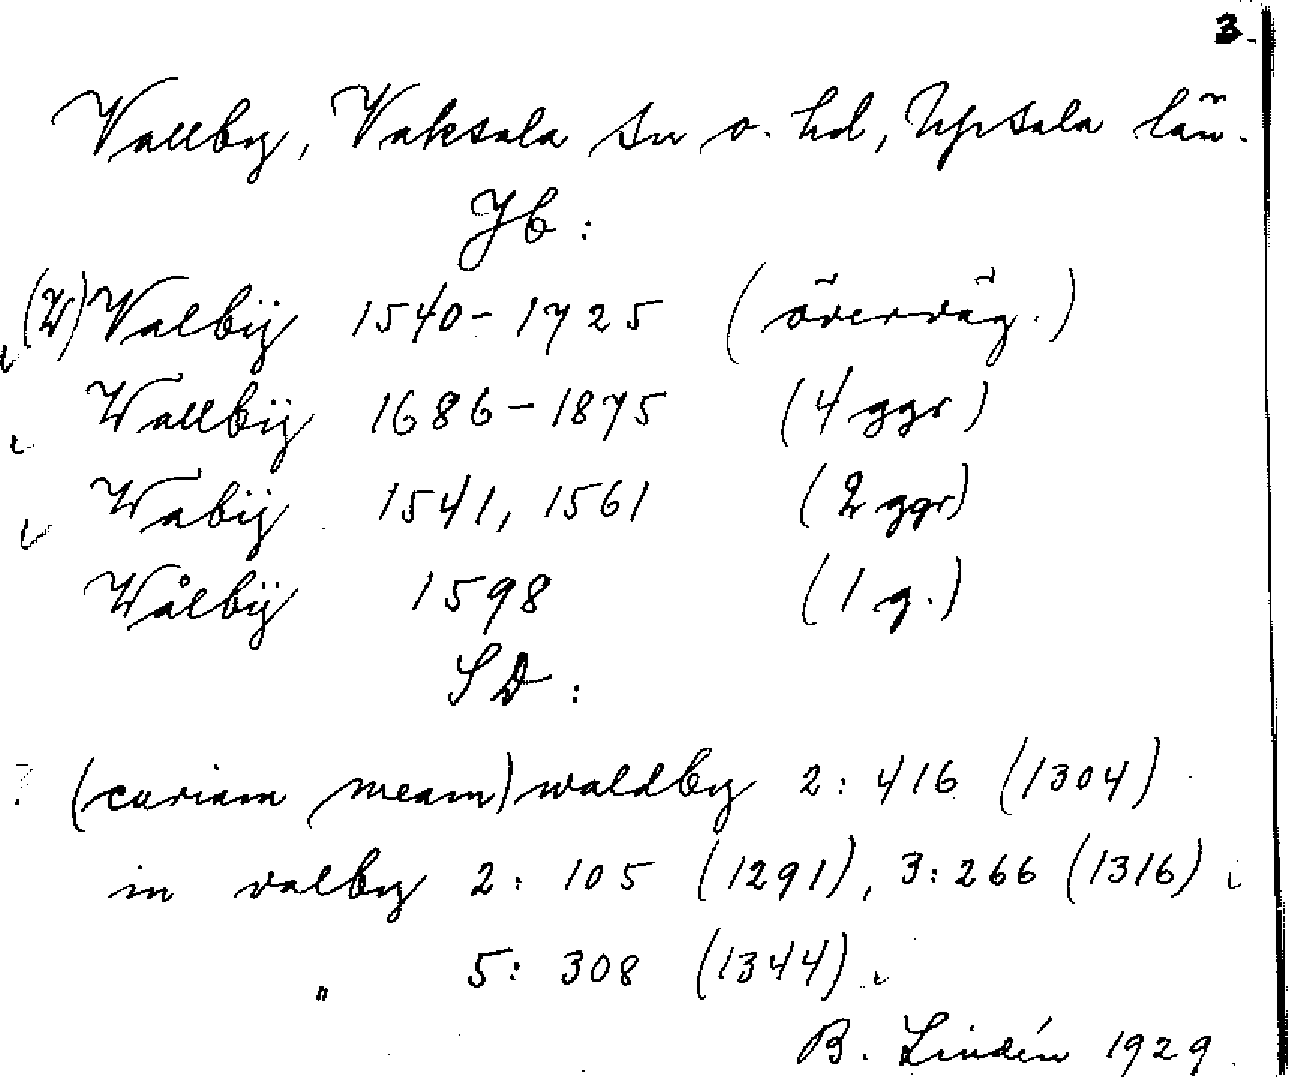 3.
Vallby, Vaksala sn o. hd, Upsala län.
Jb:
(W)Valbÿ 1540-1725 (överväg.)
Wallbÿ 1686-1875 (4 ggr)
Wabÿ 1541, 1561 (2 ggr)
Wålbÿ 1598 (1 g.)
SD:
? (curiam meam) waldby 2: 416 (1304)
in valby 2: 105 (1291), 3: 266 (1316)
" 5: 308 (1344)
B. Lindén 1929